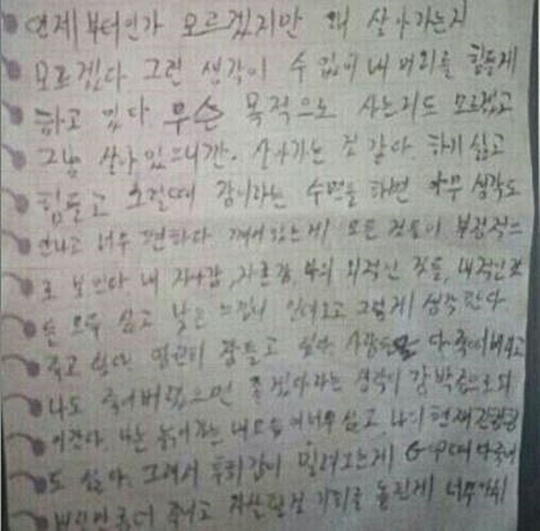 언제부터인가 모르겠지만 왜 살아가는지
모르겠다 그런 생각이 수 없이 내 머리를 힘들게
하고 있다 무슨 목적으로 사는지도 모르겠고
그냥 살아 있으니깐. 살아가는 것 같다. 하기 싫고
힘들고 그럴때 잠이라는 수면을 하면 아무 생각도
안나고 너무 편하다 깨어있는게 모든 것들이 부정적으
로 보인다. 내 자신감, 자존감, 나의 외적인 것들, 내적인 것
들 모두 싫고 낮은 느낌이 인다고 그렇게 생각한다.
죽고 싶다. 영원히 잠들고 싶다. 사람들을 다 죽여버리고
나도 죽어버렸으면 좋겠다라는 생각이 강박증으로 되
어간다. 나는 늙어가는 내모습이 너무 싫고 나의 현재
도 싫다. 그래서 후회감이 밀려오는게 GOP때 다 죽여
버릴만큼 더 죽이고 자살할껄 기회를 놓친게 너무 아쉬